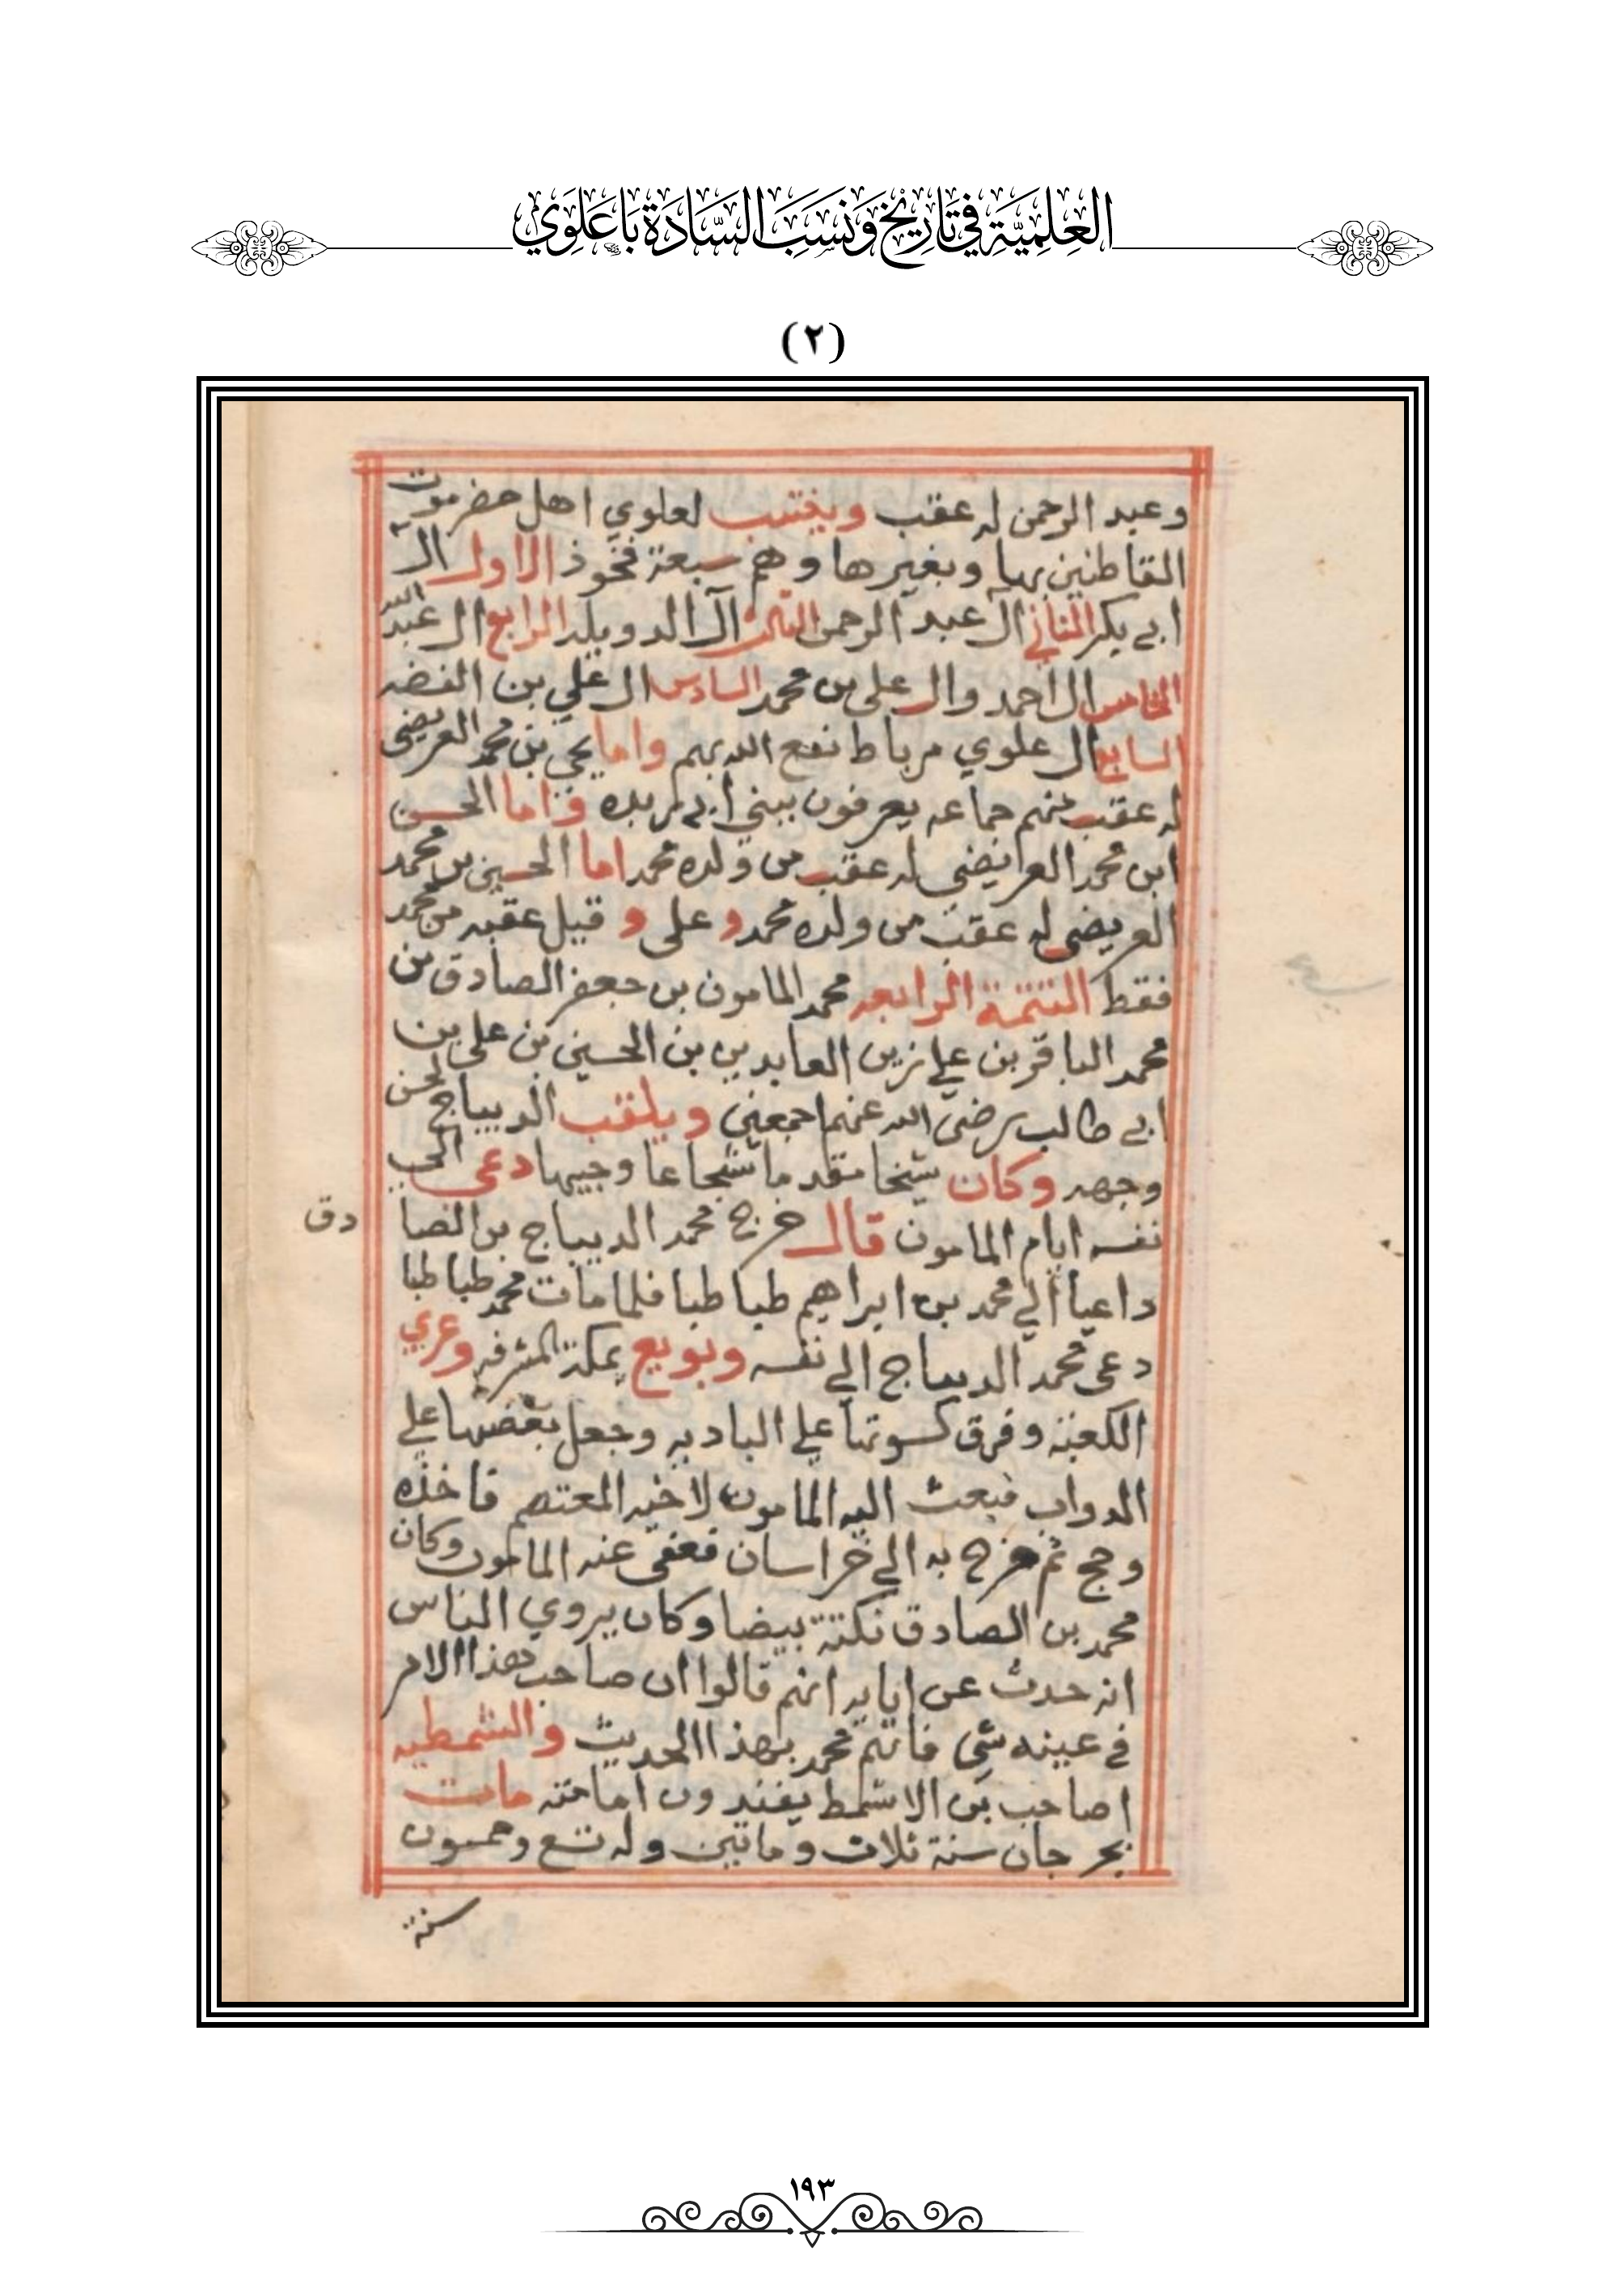 العِلْمِيَّة فِي تَارِيْخ وَنَسَبَ السَّادَة بَاعَلَوِي
(٢)
وعبد الرحمن له عقب وينتسب لعلوي اهل حضرموت
القاطنين بها وبغيرها وهم سبعة فخوذ الاول ال
ابي بكر الثاني ال عبد الرحمن الثالث آل الدويله الرابع ال عبد الله
الخامس ال احمد وال علي بن محمد السادس ال علي بن الفضه
السابع ال علوي مرباط نفع الله بهم واما يحي بن محمد العريضي
له عقب منهم جماعه يعرفون ببني ابي واما الحسن
ابن محمد العرايضي له عقب من ولده محمد اما الحسين بن محمد
العريضي له عقب من ولده محمد و علي و قيل عقبه من محمد
فقط التتمة الرابعه محمد المامون بن جعفر الصادق بن
محمد الباقر بن علي زين العابدين بن الحسين بن علي بن
ابي طالب رضي الله عنهم اجمعين ويلقب الديباج لحسن
وجهه وكان شيخا مقدما شجاعا وجيها دعى الى
نفسه ايام المامون قال خرج محمد الديباج بن الصا
دق
داعيا الي محمد بن ابراهيم طباطبا فلما مات محمد طباطبا
دعى محمد الديباج الي نفسه وبويع بمكة المشرفه وعري
الكعبة وفرق كسوتها علي الباديه وجعل بعضها علي
الدواب فبعث اليه المامون لاخيه المعتصم فاخذه
وحج ثم خرج به الي خراسان فعفى عنه المامون وكان
محمد بن الصادق نكتة بيضا وكان يروي الناس
انه حدث عن ابايه انهم قالوا ان صاحب هذا الامر
في عينه شي فاتهم محمد بهذا الحديث والشمطيه
اصاحب بن الاشمط يفندون امامته مات
بجرجان سنة ثلاث وماتين وله تسع وخمسون
سنة
١٩٣